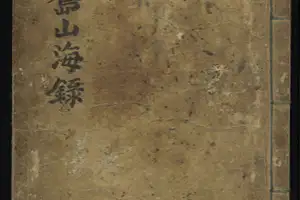 山海錄